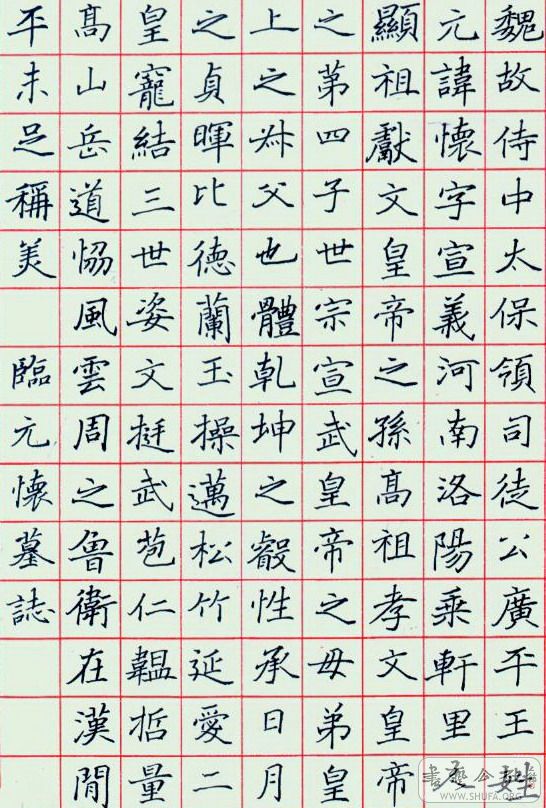 魏故侍中太保領司徒公廣平王姓
元諱懷字宣義河南洛陽乘軒里人
顯祖獻文皇帝之孫高祖孝文皇帝
之第四子世宗宣武皇帝之毋弟皇
上之叔父也體乾坤之叡性承日月
之貞暉比德蘭玉操邁松竹延愛二
皇寵結三世姿文挺武苞仁韞哲量
高山岳道恊風雲周之魯衛在漢閒
平未足稱美 臨元懷墓誌
書藝公社
WWW.SHUFA.ORG